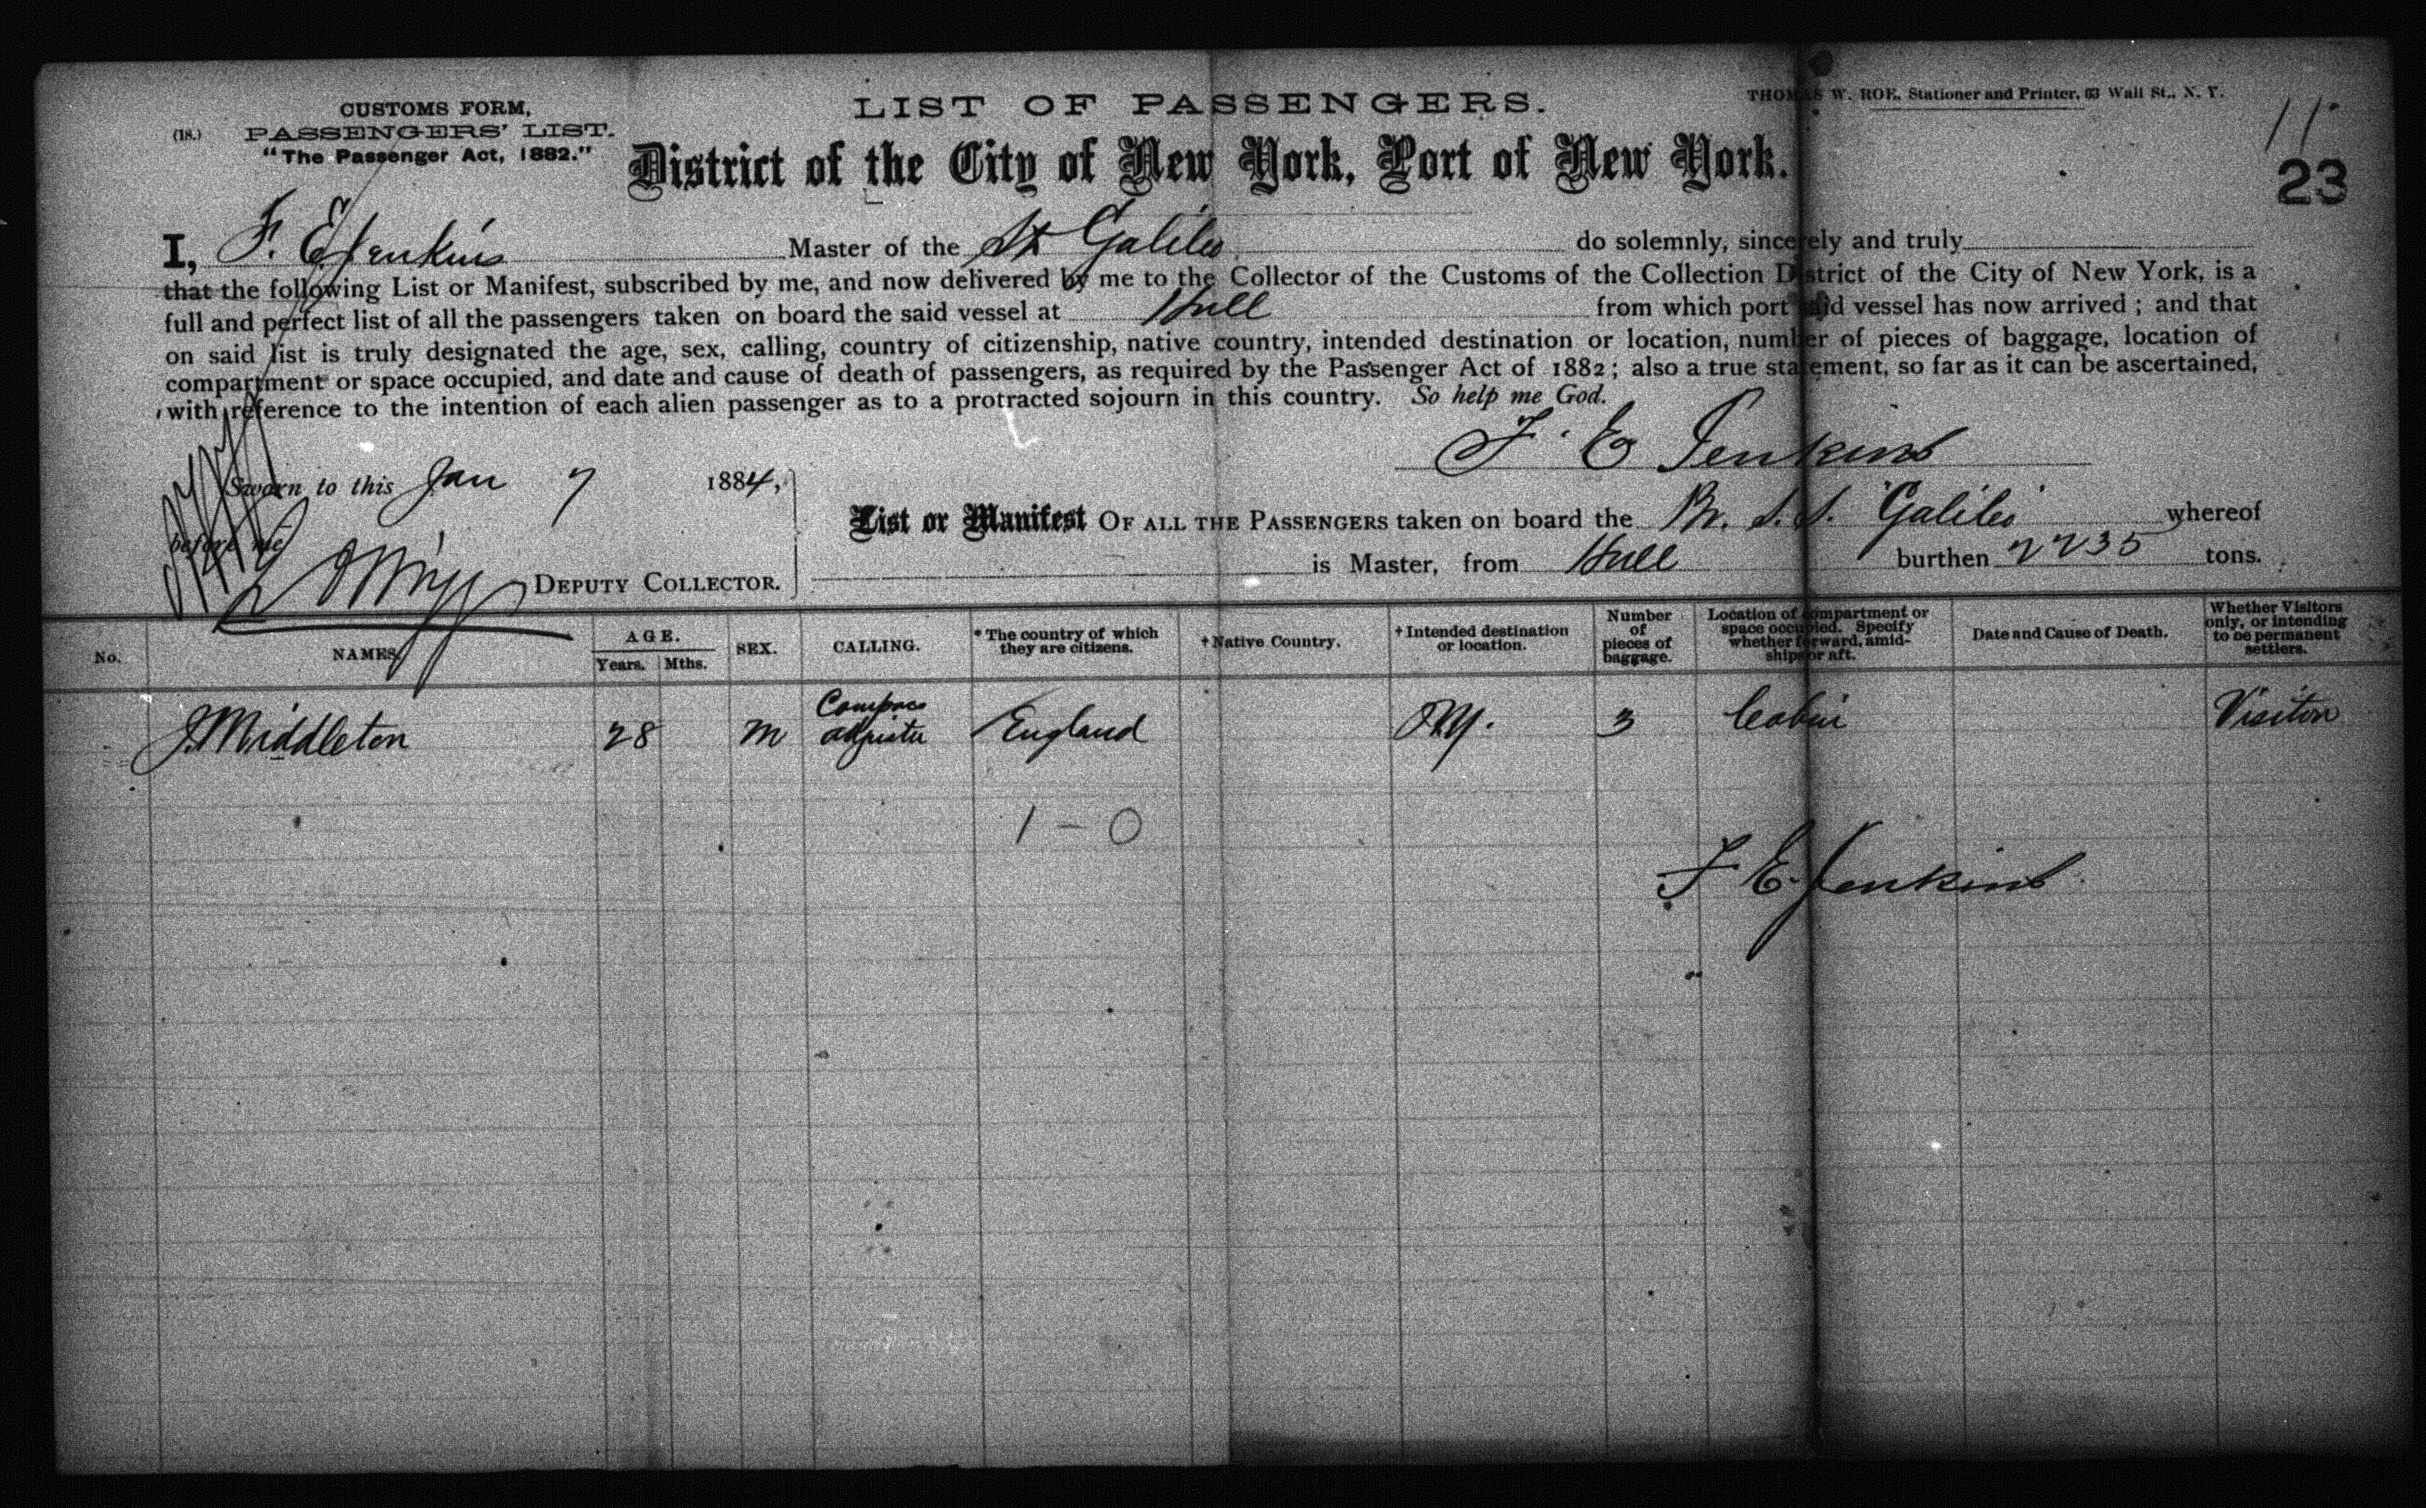 CUSTOMS FORM,
(18.) PASSENGERS' LIST.
"The Passenger Act, 1882."
LIST OF PASSENGERS.
THOMAS W. ROE, Stationer and Printer, 63 Wall St., N. Y.
11
23
District of the City of New York, Port of New York.
I, F. E. Jenkins Master of the St Galileo do solemnly, sincerely and truly
that the following List or Manifest, subscribed by me, and now delivered by me to the Collector of the Customs of the Collection District of the City of New York, is a
full and perfect list of all the passengers taken on board the said vessel at Hull from which port said vessel has now arrived; and that
on said list is truly designated the age, sex, calling, country of citizenship, native country, intended destination or location, number of pieces of baggage, location of
compartment or space occupied, and date and cause of death of passengers, as required by the Passenger Act of 1882; also a true statement, so far as it can be ascertained,
with reference to the intention of each alien passenger as to a protracted sojourn in this country. So help me God.
F. E Jenkins
Sworn to this Jan 7 1884,
before me
DEPUTY COLLECTOR.
List or Manifest OF ALL THE PASSENGERS taken on board the Br. S.S. "Galileo" whereof
is Master, from Hull burthen 2235 tons.
No. NAMES. AGE. Years. Mths. SEX. CALLING. * The country of which they are citizens. † Native Country. † Intended destination or location. Number of pieces of baggage. Location of compartment or space occupied. Specify whether forward, amidships or aft. Date and Cause of Death. Whether Visitors only, or intending to be permanent settlers.
J. Middleton 28 M Compass adjuster England N.Y. 3 Cabin Visitor
1 - 0
F E. Jenkins